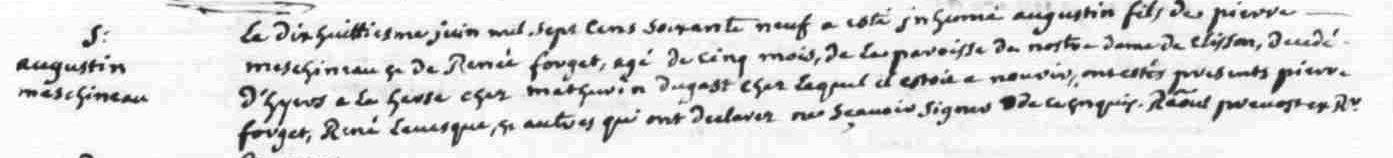 S:
augustin
meschineau
Le dixhuittiesme juin mil sept cens soixante neuf a esté inhumé augustin fils de pierre
meschineau & de Renée forget, agé de cinq mois, de la paroisse de nostre dame de Clisson, decedé
d'hyers a la herse chez mathurin dugast chez lequel il estoit a nourir, ont estés presents pierre
forget, René Levesque, & autres qui ont declarez ne sçavoir signer de ce enquis. Raoul prevost